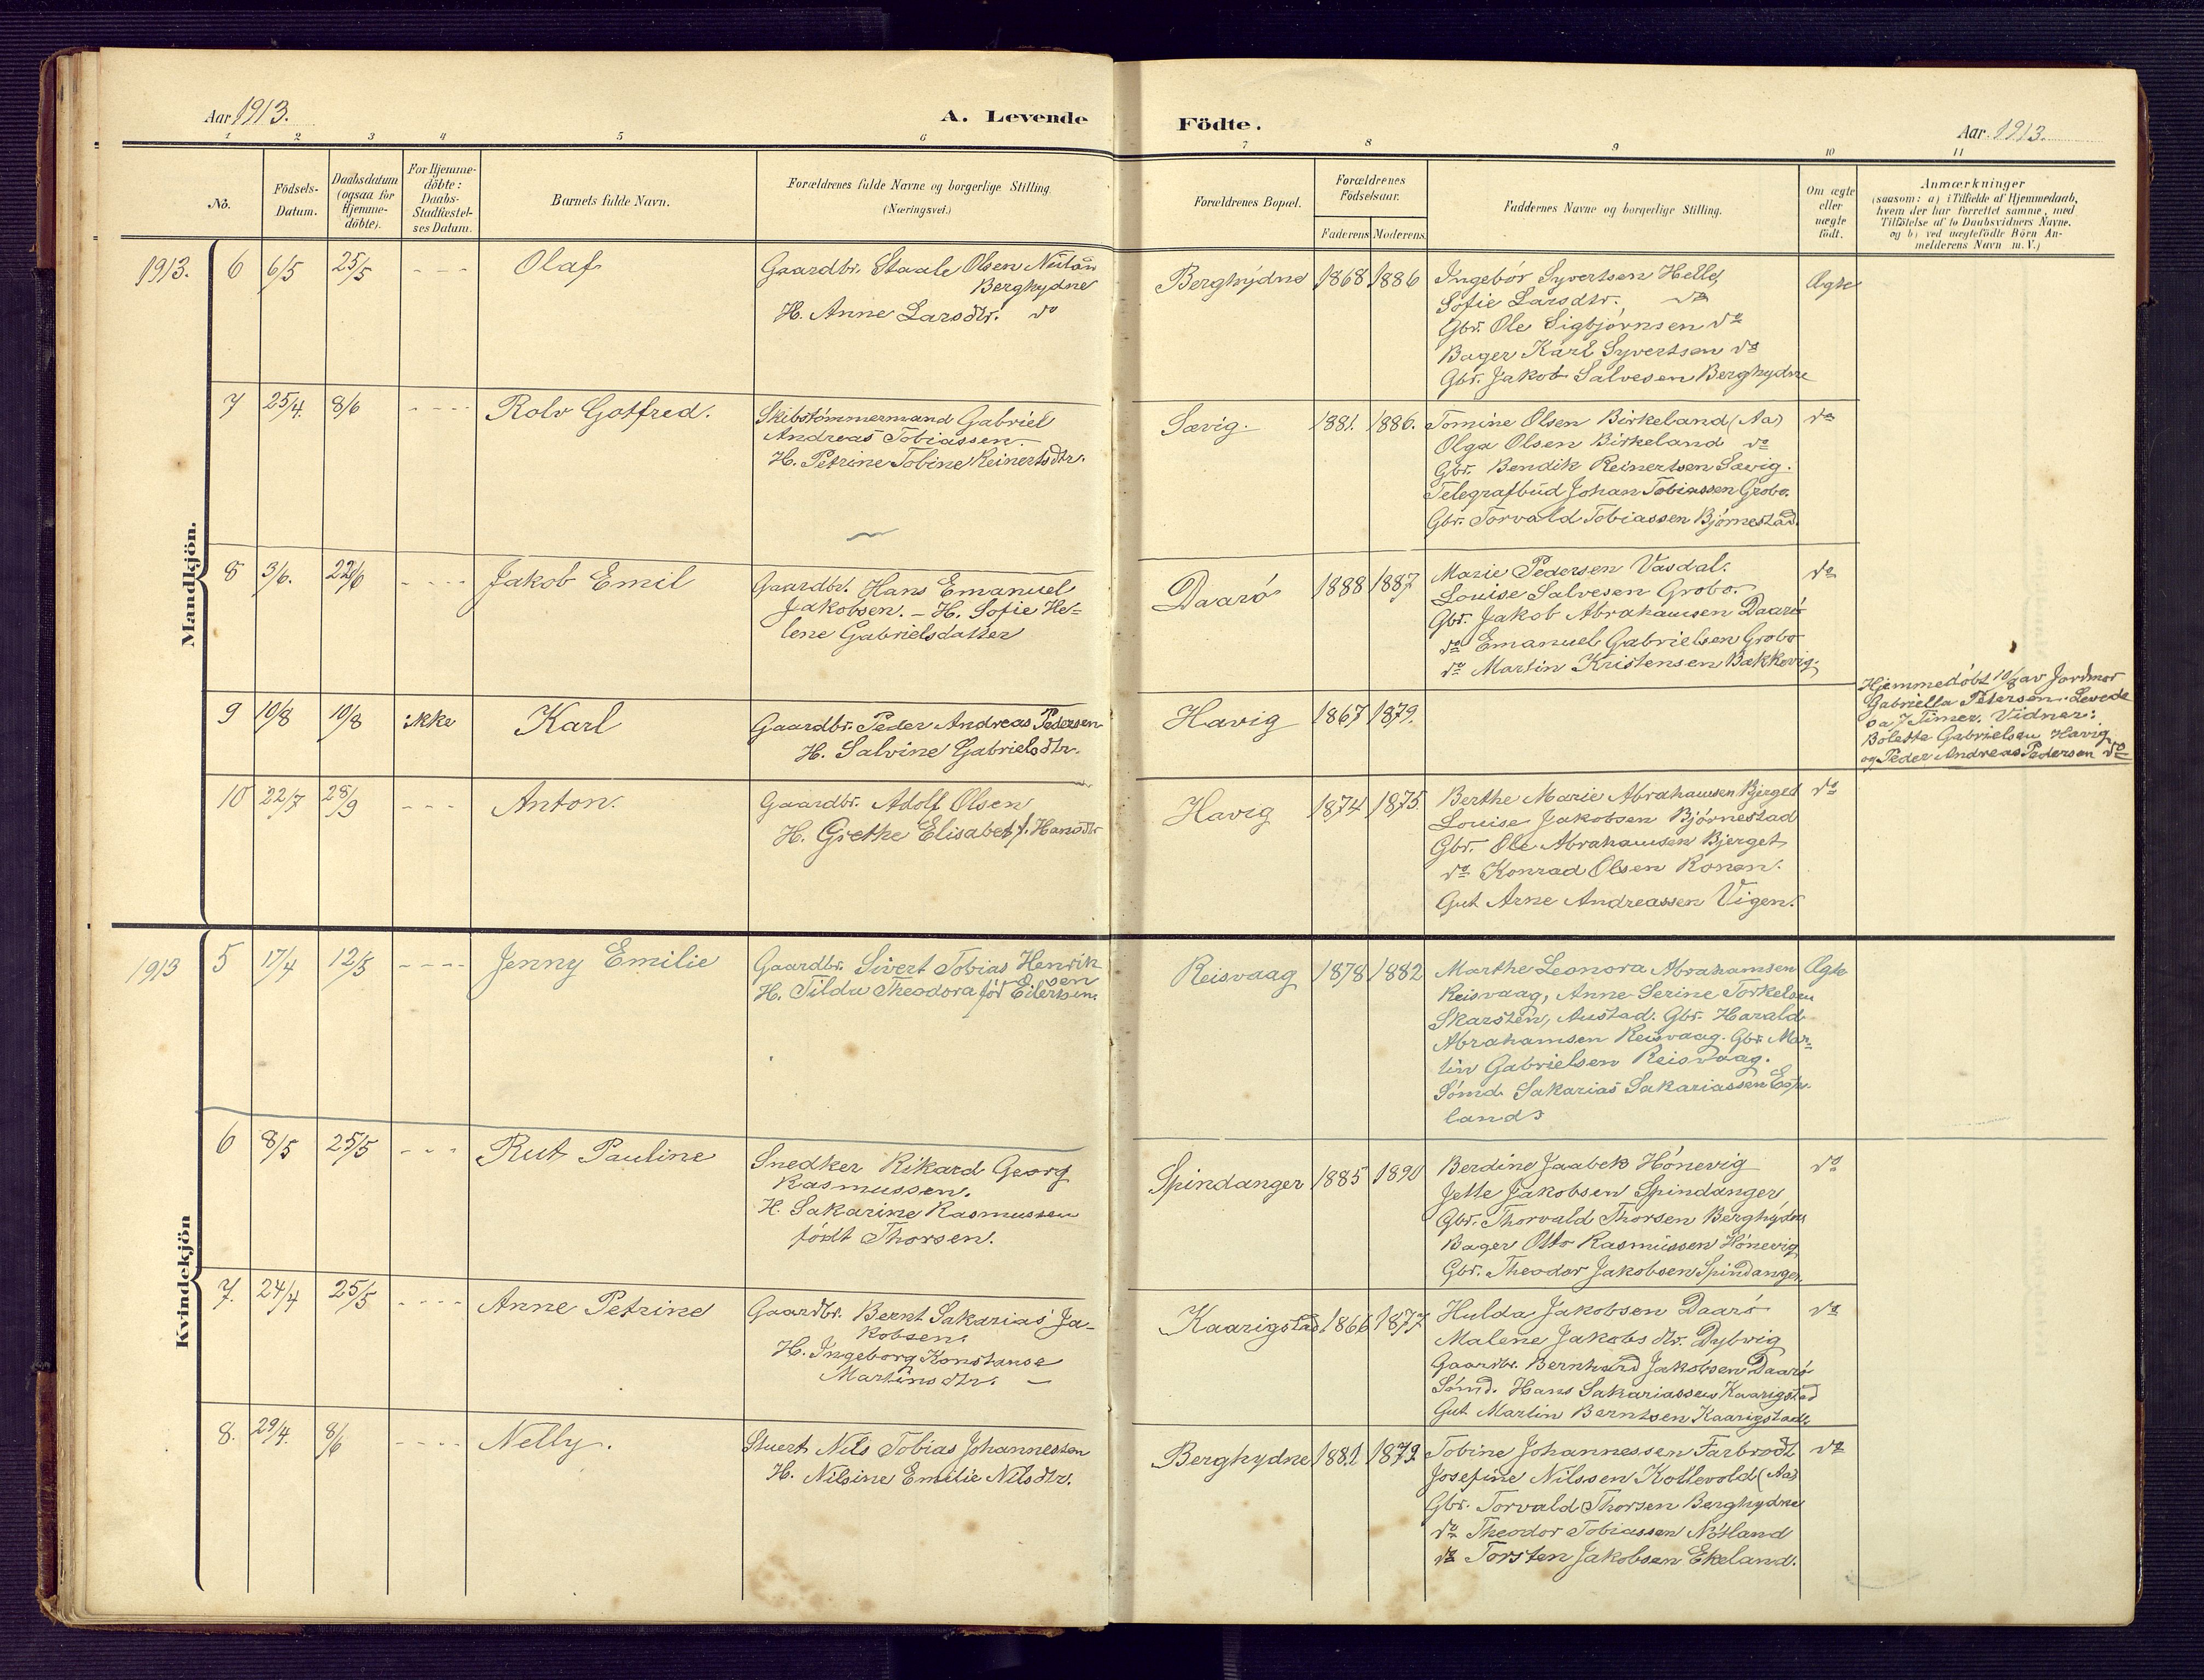 Aar 1913.
A. Levende
Födte.
Aar. 1913.
1 2 3 4 5 6 7 8 9 10 11
No.
Födsels-
Datum.
Daabsdatum
(ogsaa for
Hjemme-
döbte).
For Hjemme-
döbte:
Daabs-
Stadfæstel-
ses Datum.
Barnets fulde Navn.
Forældrenes fulde Navne og borgerlige Stilling
(Næringsvei.)
Forældrenes Bopæl.
Forældrenes
Födselsaar.
Faderens Moderens
Faddernes Navne og borgerlige Stilling.
Om ægte
eller
uægte
födt.
Anmærkninger
(saasom: a) i Tilfælde af Hjemmedaab,
hvem der har forrettet samme, med
Tilföielse af to Daabsvidners Navne.
og b) ved uægtefödte Börn An-
melderens Navn m. V.)
Mandkjön.
1913. 6 6/5 25/5 - - - Olaf
Gaardbr. Staale Olsen
Berghydne
H. Anne Larsdtr. do
Berghydne 1868 1886
Ingebór Syvertsen Helle,
Sofie Larsdtr. do
Gbr. Ole Sigbjórnsen do
Bager Karl Syvertsen do
Gbr. Jakob Salvesen Berghydne
Ægte
7 25/4. 8/6 - - - - Rolv Gotfred.
Skibstómmermand Gabriel
Andreas Tobiassen.
H. Petrine Tobine Reinertsdtr.
Sævig. 1881. 1886.
Tomine Olsen Birkeland (Aa)
Olga Olsen Birkeland do
Gbr. Bendik Reinertsen Sævig.
Telegrafbud Johan Tobiassen Grobo.
Gbr. Torvald Tobiassen Bjórnestad.
do
8 3/6. 22/6 - - - - Jakob Emil
Gaardbr. Hans Emanuel
Jakobsen. - H. Sofie He-
lene Gabrielsdatter
Daaró 1888 1887
Marie Pedersen Vasdal.
Louise Salvesen Grobo.
Gbr. Jakob Abrahamsen Daaró
do Emanuel Gabrielsen Grobo
do Martin Kristensen Bækkevig.
do
9 10/8 10/8 ikke Karl
Gaardbr. Peder Andreas Pedersen
H. Salvine Gabrielsdtr.
Havig 1867 1879.
Hjemmedóbt 10/8 av Jordmor
Gabriella Petersen. Levede
ca 7 Timer. Vidner:
Bolette Gabrielsen Havig
og Peder Andreas Pedersen do
10 22/7 28/9 - - - Anton.
Gaardbr. Adolf Olsen
H. Grethe Elisabet f. Hansdtr
Havig 1874 1875.
Berthe Marie Abrahamsen Bjerget
Louise Jakobsen Bjórnestad
Gbr. Ole Abrahamsen Bjerget
do Konrad Olsen Ronen.
Gut Arne Andreassen Vigen.
do
Kvindekjön
1913 5 17/4 12/5 - - - - Jenny Emilie
Gaardbr. Sivert Tobias Henrik
sen
H. Tilda Theodora fór Eilertsen.
Reisvaag 1878 1882
Marthe Leonora Abrahamsen
Reisvaag, Anne Serine Torkelsen
Skarsten, Austad. Gbr. Harald
Abrahamsen Reisvaag. Gbr. Mar-
tin Gabrielsen Reisvaag.
Sómd. Sakarias Sakariassen Espe-
land
Ægte
6 8/5 25/5 - - - Rut Pauline
Snedker Rikard Georg
Rasmussen.
H. Sakarine Rasmussen
fódt Thorsen.
Spindanger 1885 1890
Berdine Jaabek Hónevig
Jette Jakobsen Spindanger
Gbr. Thorvald Thorsen Berghydne
Bager Otto Rasmussen Hónevig
Gbr. Theodor Jakobsen Spindanger
do
7. 24/4 25/5 - - - - Anne Petrine
Gaardbr. Bernt Sakarias Ja-
kobsen.
H. Ingeborg Konstanse
Martinsdtr. -
Kaarigstad. 1866 1877
Hulda Jakobsen Daaró
Malene Jakobsdtr. Dybvig
Gaardbr. Bernhard Jakobsen Daaró
Sómd. Hans Sakariassen Kaarigstad
Gut Martin Berntsen Kaarigstad
do
8. 29/4. 8/6 - - - - Nelly.
Stuert Nils Tobias Johannessen
H. Nilsine Emilie Nilsdtr.
Berghydne 1881 1879.
Tobine Johannessen Farbrodt
Josefine Nilssen Kollevold (Aa)
Gbr. Torvald Thorsen Berghydne
do Theodor Tobiassen Nótland
do Torsten Jakobsen Ekeland.
do